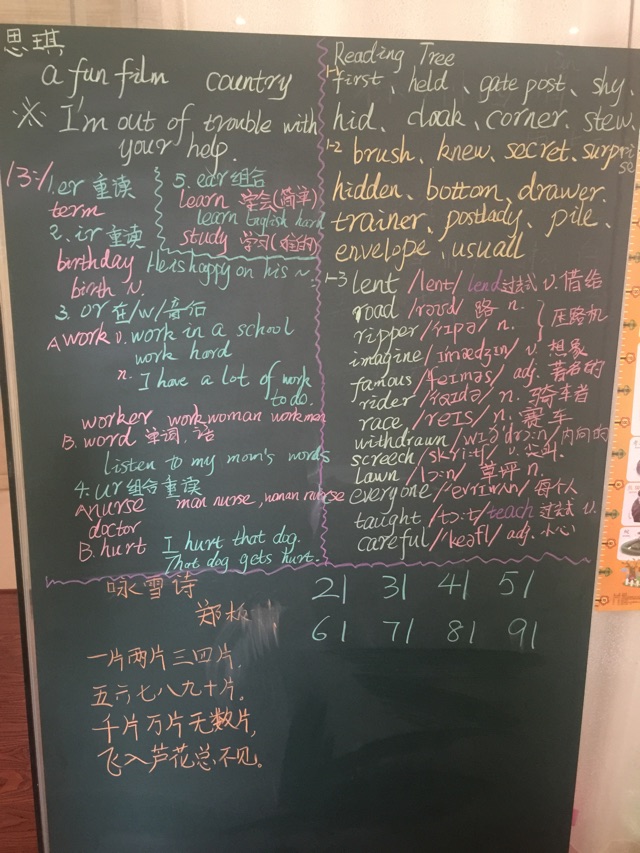 思琪
a fun film country
※ I'm out of trouble with
your help.
13:/
1. er 重读
term
2. ir 重读
birthday He is happy on his ~.
birth n.
5. ear 组合
learn 学会(简单)
learn English hard
study 学习(难的)
3. or 在/w/音后
A work v. work in a school
work hard
n. I have a lot of work
to do.
worker workwoman workman
B. word 单词, 话
listen to my mom's words
4. ur 组合重读
A nurse man nurse, woman nurse
doctor
B. hurt I hurt that dog.
That dog gets hurt.
Reading Tree
1-1
first、held、gate post、shy、
hid、cloak、corner、stew
1-2 brush、knew、secret、surprise
hidden、bottom、drawer、
trainer、postlady、pile、
envelope、usuall
1-3 lent /lent/ lend过去式 v. 借给
road /rəʊd/ 路 n.
ripper /rɪpə/ n. 压路机
imagine /ɪmædʒɪn/ v. 想象
famous /feɪməs/ adj. 著名的
rider /raɪdə/ n. 骑车者
race /reɪs/ n. 赛车
withdrawn /wɪð'drɔ:n/ 内向的
screech /skri:tʃ/ v. 尖叫.
lawn /lɔ:n/ 草坪 n.
everyone /'evrɪwʌn/ 每个人
taught /tɔ:t/ teach 过去式 v.
careful /'keəfl/ adj. 小心
咏雪诗
郑板
一片两片三四片,
五六七八九十片。
千片万片无数片,
飞入芦花总不见。
21 31 41 51
61 71 81 91